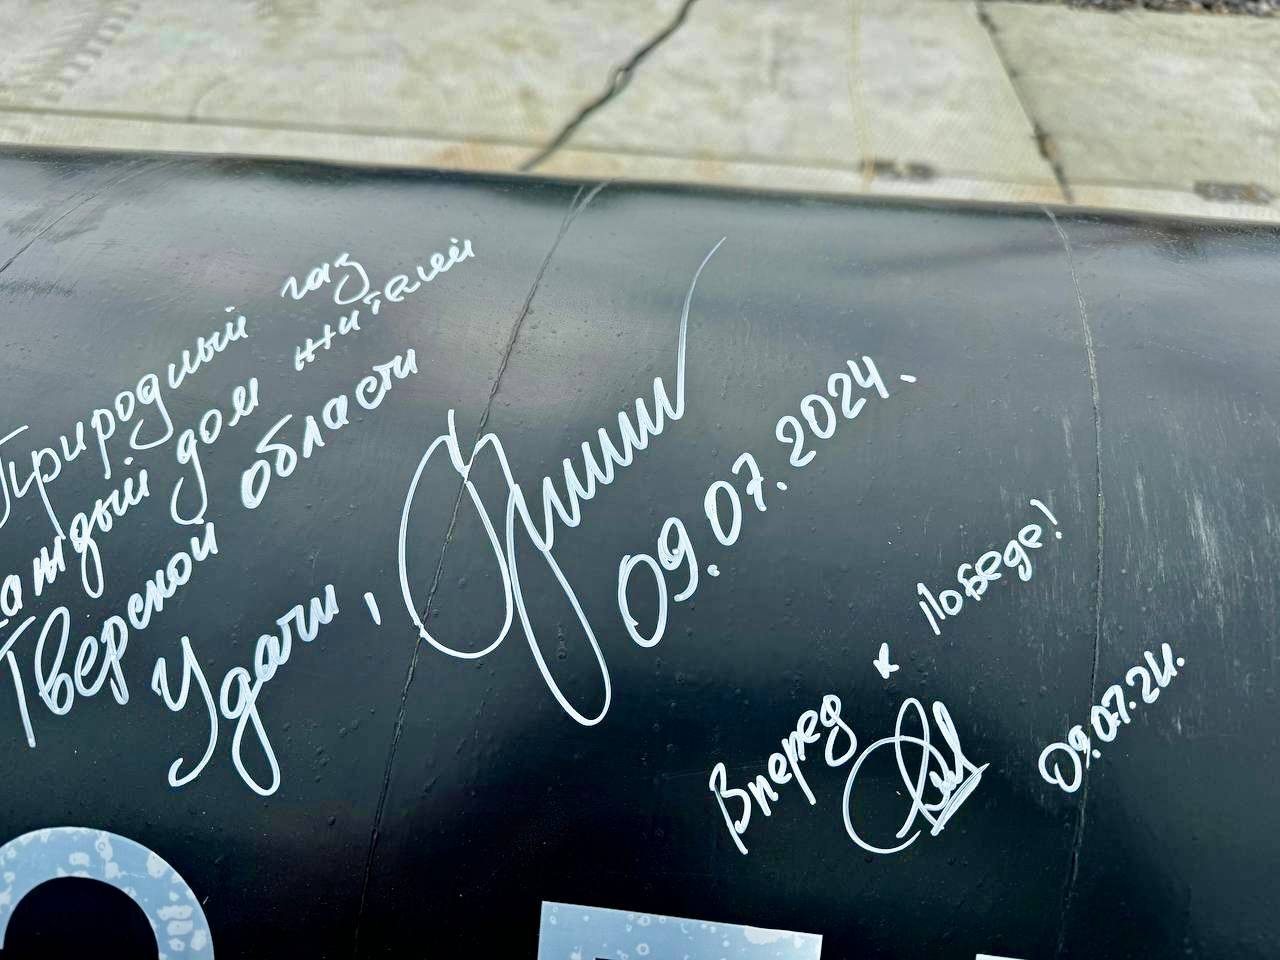 Природный газ
каждый дом жителей
Тверской области
Удачи,
09.07.2024.
Вперед к Победе!
09.07.24.